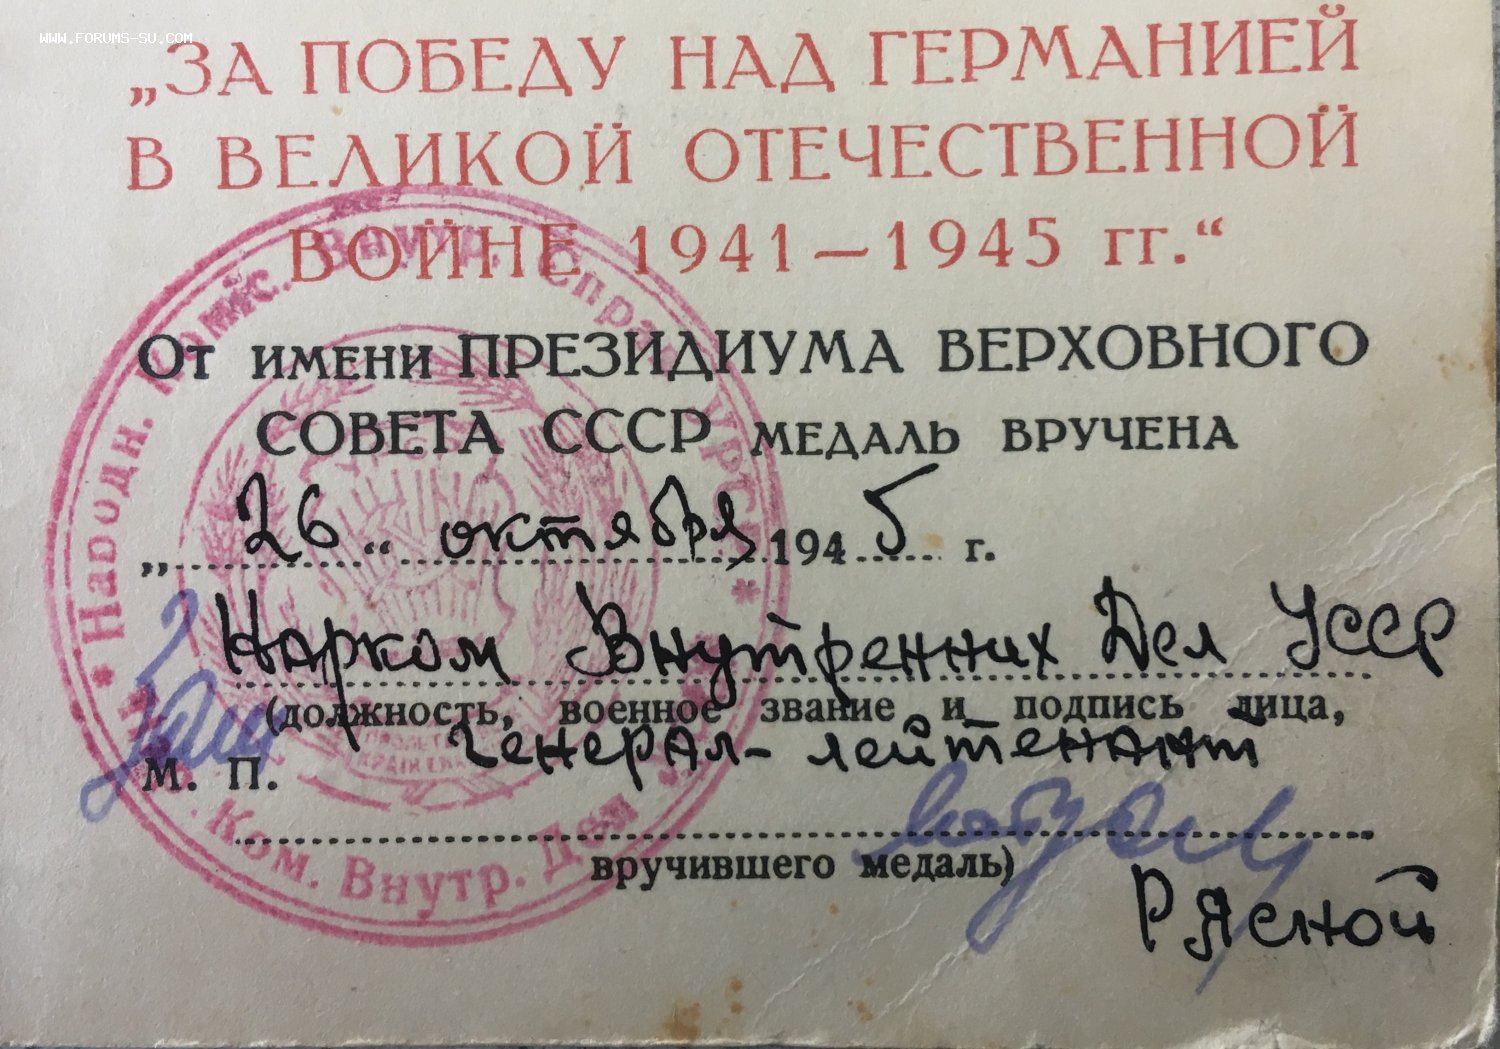 WWW.FORUMS-SU.COM
„ЗА ПОБЕДУ НАД ГЕРМАНИЕЙ
В ВЕЛИКОЙ ОТЕЧЕСТВЕННОЙ
ВОЙНЕ 1941—1945 гг.“
От имени ПРЕЗИДИУМА ВЕРХОВНОГО
СОВЕТА СССР МЕДАЛЬ ВРУЧЕНА
„26“ октября 1945 г.
Нарком Внутренних Дел УССР
(должность, военное звание и подпись лица,
генерал-лейтенант
М. П.
вручившего медаль)
Рясной
Народн. Коміс. Внутр. Справ УРСР
Ком. Внутр. Дел